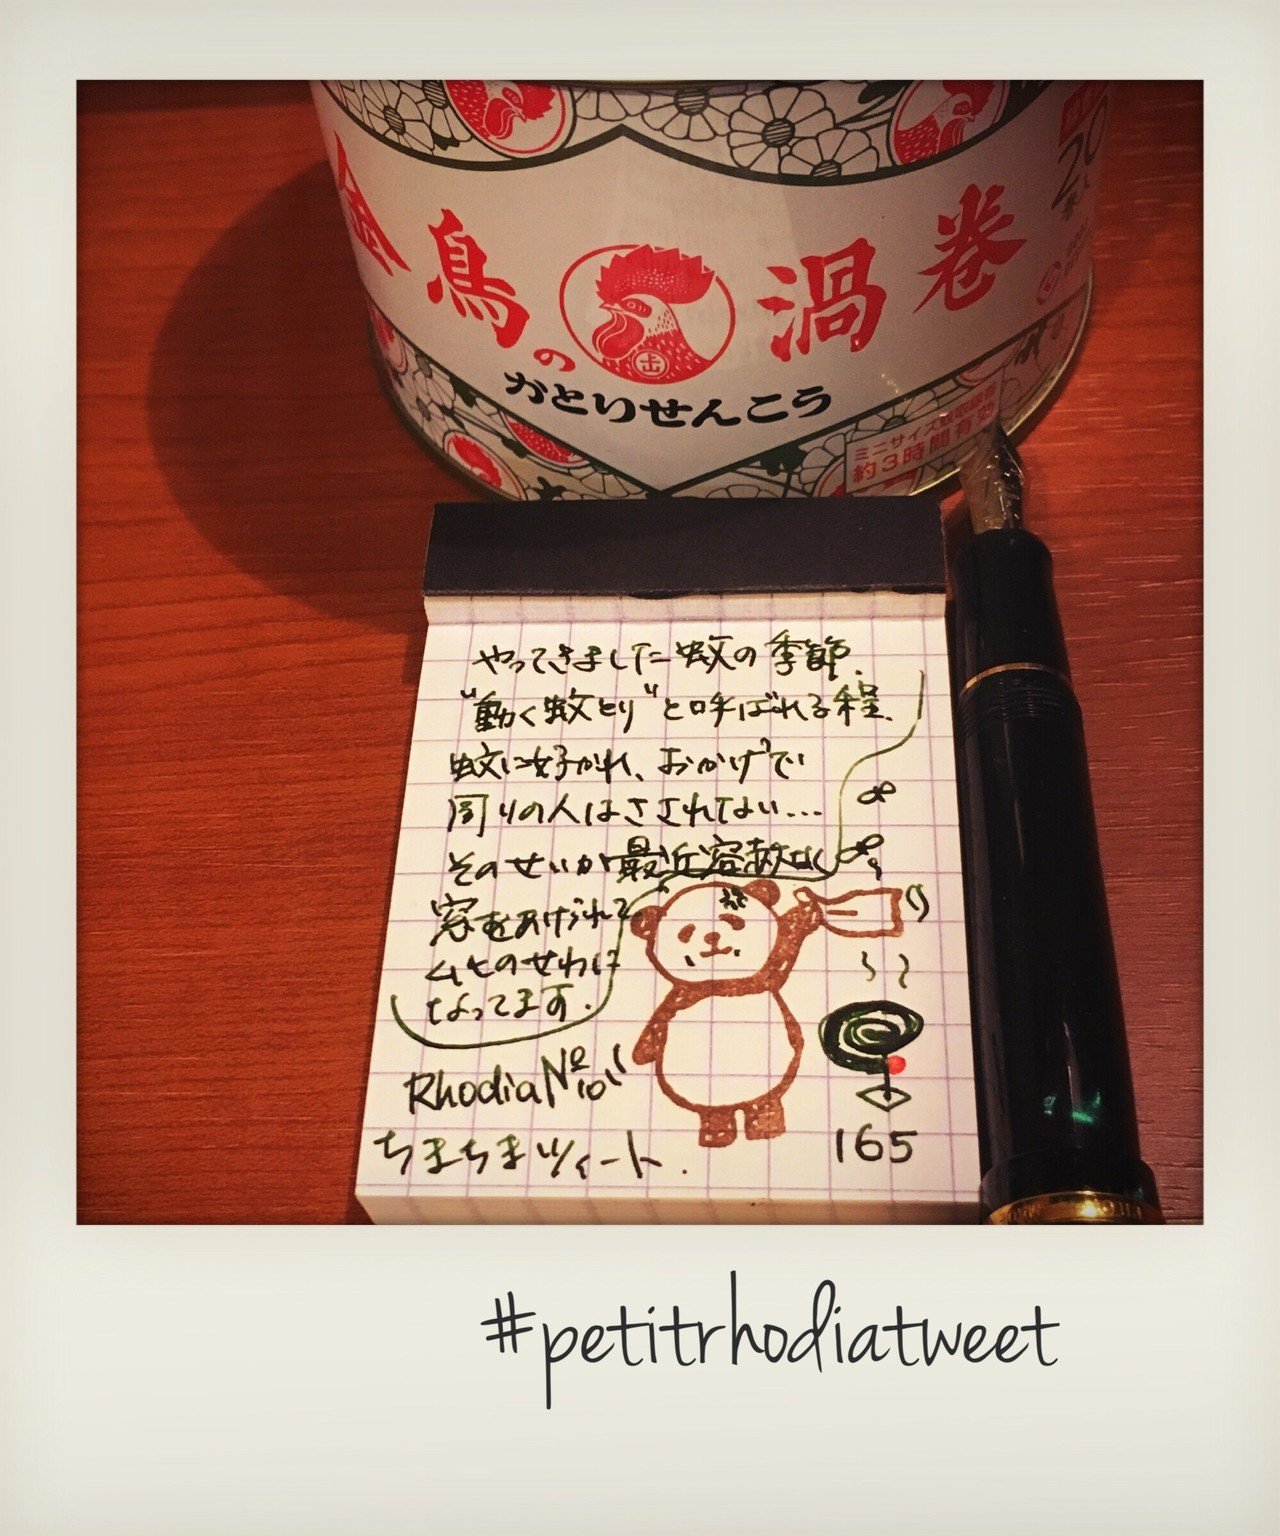 金鳥の渦巻
かとりせんこう
20
ミニサイズ
約3時間有効
やってきました蚊の季節.
"動く蚊とり"と呼ばれる程.
蚊に好かれ、おかげで
周りの人はさされてない...
そのせいか最近容赦なく
窓をあけられて
ムヒのせわに
なってます.
Rhodia No10
ちまちまツイート.
165
#petitrhodiatweet